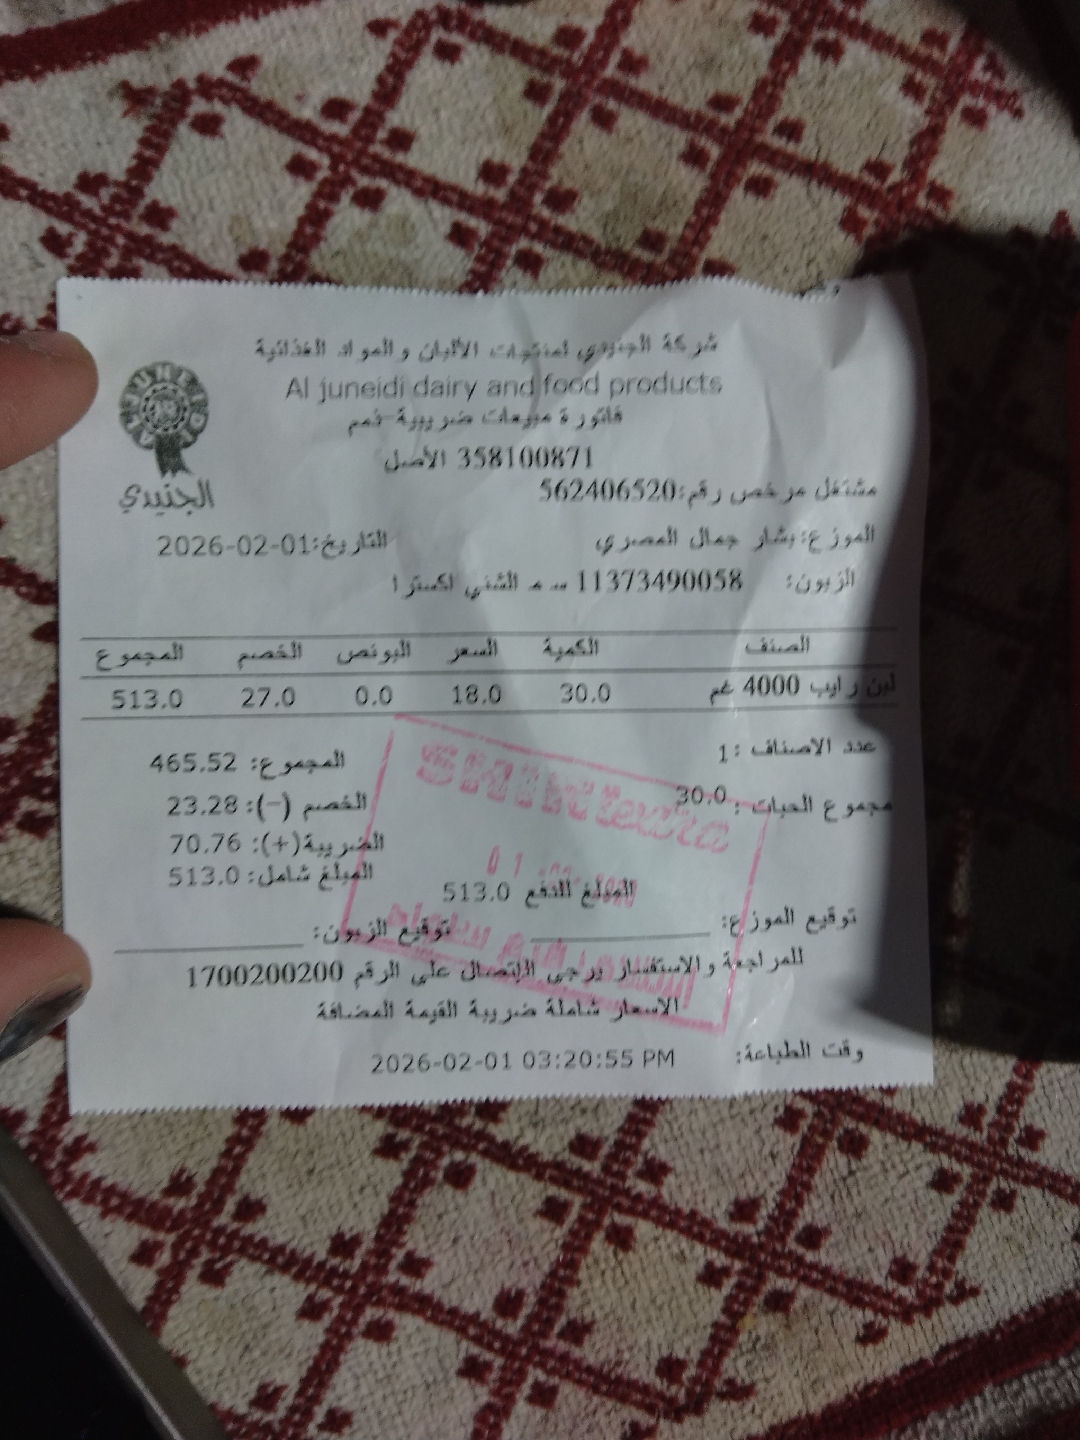 شركة الجنيدي لمنتجات الألبان والمواد الغذائية
Al juneidi dairy and food products
فاتورة مبيعات ضريبية-ذمم
358100871 الأصل
الجنيدي
مشتغل مرخص رقم:562406520
الموزع:بشار جمال المصري التاريخ:2026-02-01
الزبون: 11373490058 س م الشني اكسترا
الصنف الكمية السعر البونص الخصم المجموع
لبن رايب 4000 غم 30.0 18.0 0.0 27.0 513.0
عدد الاصناف :1 المجموع: 465.52
مجموع الحبات : 30.0 الخصم (-): 23.28
الضريبة(+): 70.76
المبلغ شامل: 513.0
المبلغ للدفع 513.0
توقيع الموزع: توقيع الزبون:
للمراجعة والاستفسار يرجى الإتصال على الرقم 1700200200
الاسعار شاملة ضريبة القيمة المضافة
وقت الطباعة: 2026-02-01 03:20:55 PM